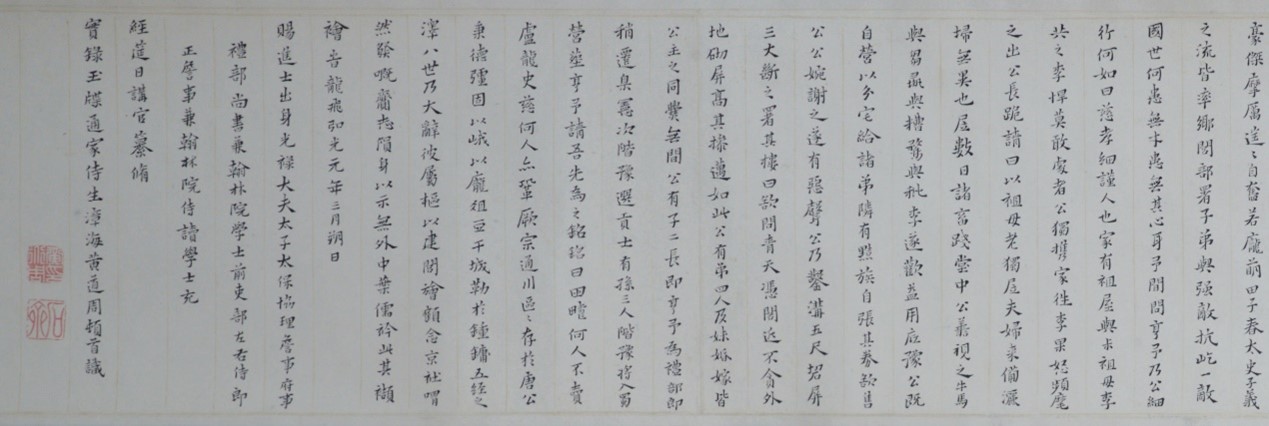 豪傑摩厲道之自奮若龐萌田子春太史子義
之流皆率鄉閭部署子弟與强敵抗屹一敵
國世何患無才患無其心耳予聞問亨予乃公細
行何如曰慈孝細謹人也家有祖屋與未祖母李
共之李悍莫敢處者公獨攜家徃李果怒頻麾
之出公長跪請曰以祖母老獨居夫婦來備灑
埽無異也居數日諸畜踐堂中公羲視之牛馬
與芻雖與槽騖與秕李遂歡益用底豫公既
自營以分宅哈諸弟隣有黠族自張其券欲售
公公婉謝之遂有惡聲公乃鑿溝五尺砌屏
三大斷之署其樓曰欲問青天憑閣近不貪外
地砌屏高其操邁如此公有弟四人及妹婚嫁皆
公主之同爨無間公有子二長即亨予為禮部郎
稍遷臬憲次階豫選貢士有孫三人階豫將入蜀
營塟亨予請吾先為之銘銘曰田疇何人不賣
盧龍史慈何人亦鞏厥宗通川區之存於唐公
秉德彊固以峨以龐徂亞干城勒於鍾鏞五經之
澤八世乃大辭彼屬樞以建閣禬顧念京社喟
然發嘅齎志隕身以示無外中葉儒衿此其襭
襘 告龍飛弘光元年三月朔日
賜進士出身光祿大夫太子太保協理詹事府事
禮部尚書兼翰林院學士前吏部左右侍郎
正詹事兼翰林院侍讀學士充
經筵日講官纂脩
實錄玉牒通家侍生漳海黃道周頓首議